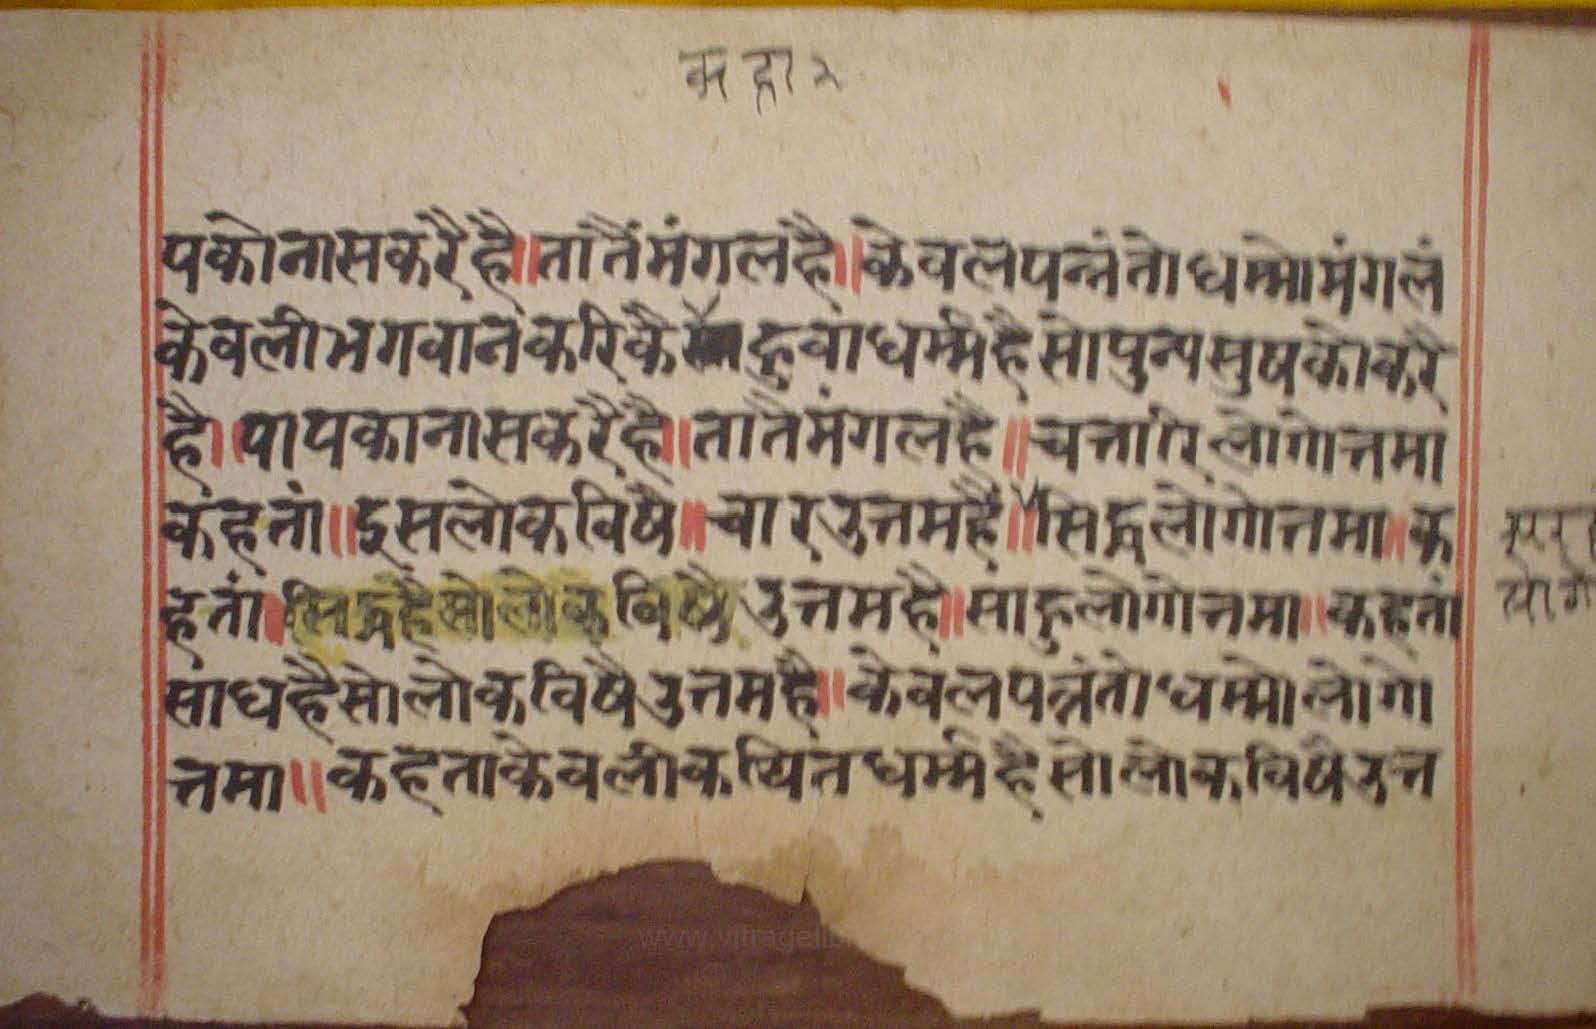 पकोनासकरैहै॥तातैंमंगलहै॥केवलपन्नंतोधम्मोमंगलं
केवलीभगवानकरिकै हुवाधर्म्महैसोपुन्यसुषकोकरै
है॥पापकानासकरैहै॥तातैमंगलहै॥चत्तारिलोगोत्तमा
कहतां॥इसलोकविषै॥चारउत्तमहै॥सिद्धलोगोत्तमा॥क
हतां॥सिद्धहैसोलोकविषैउत्तमहै॥साहुलोगोत्तमा॥कहतां
साधहैसोलोकविषैउत्तमहै॥केवलपन्नंतोधम्मोलोगो
त्तमा॥कहताकेवलीकथितधर्म्महैसोलोकविषैउत्त
www.vitrageli